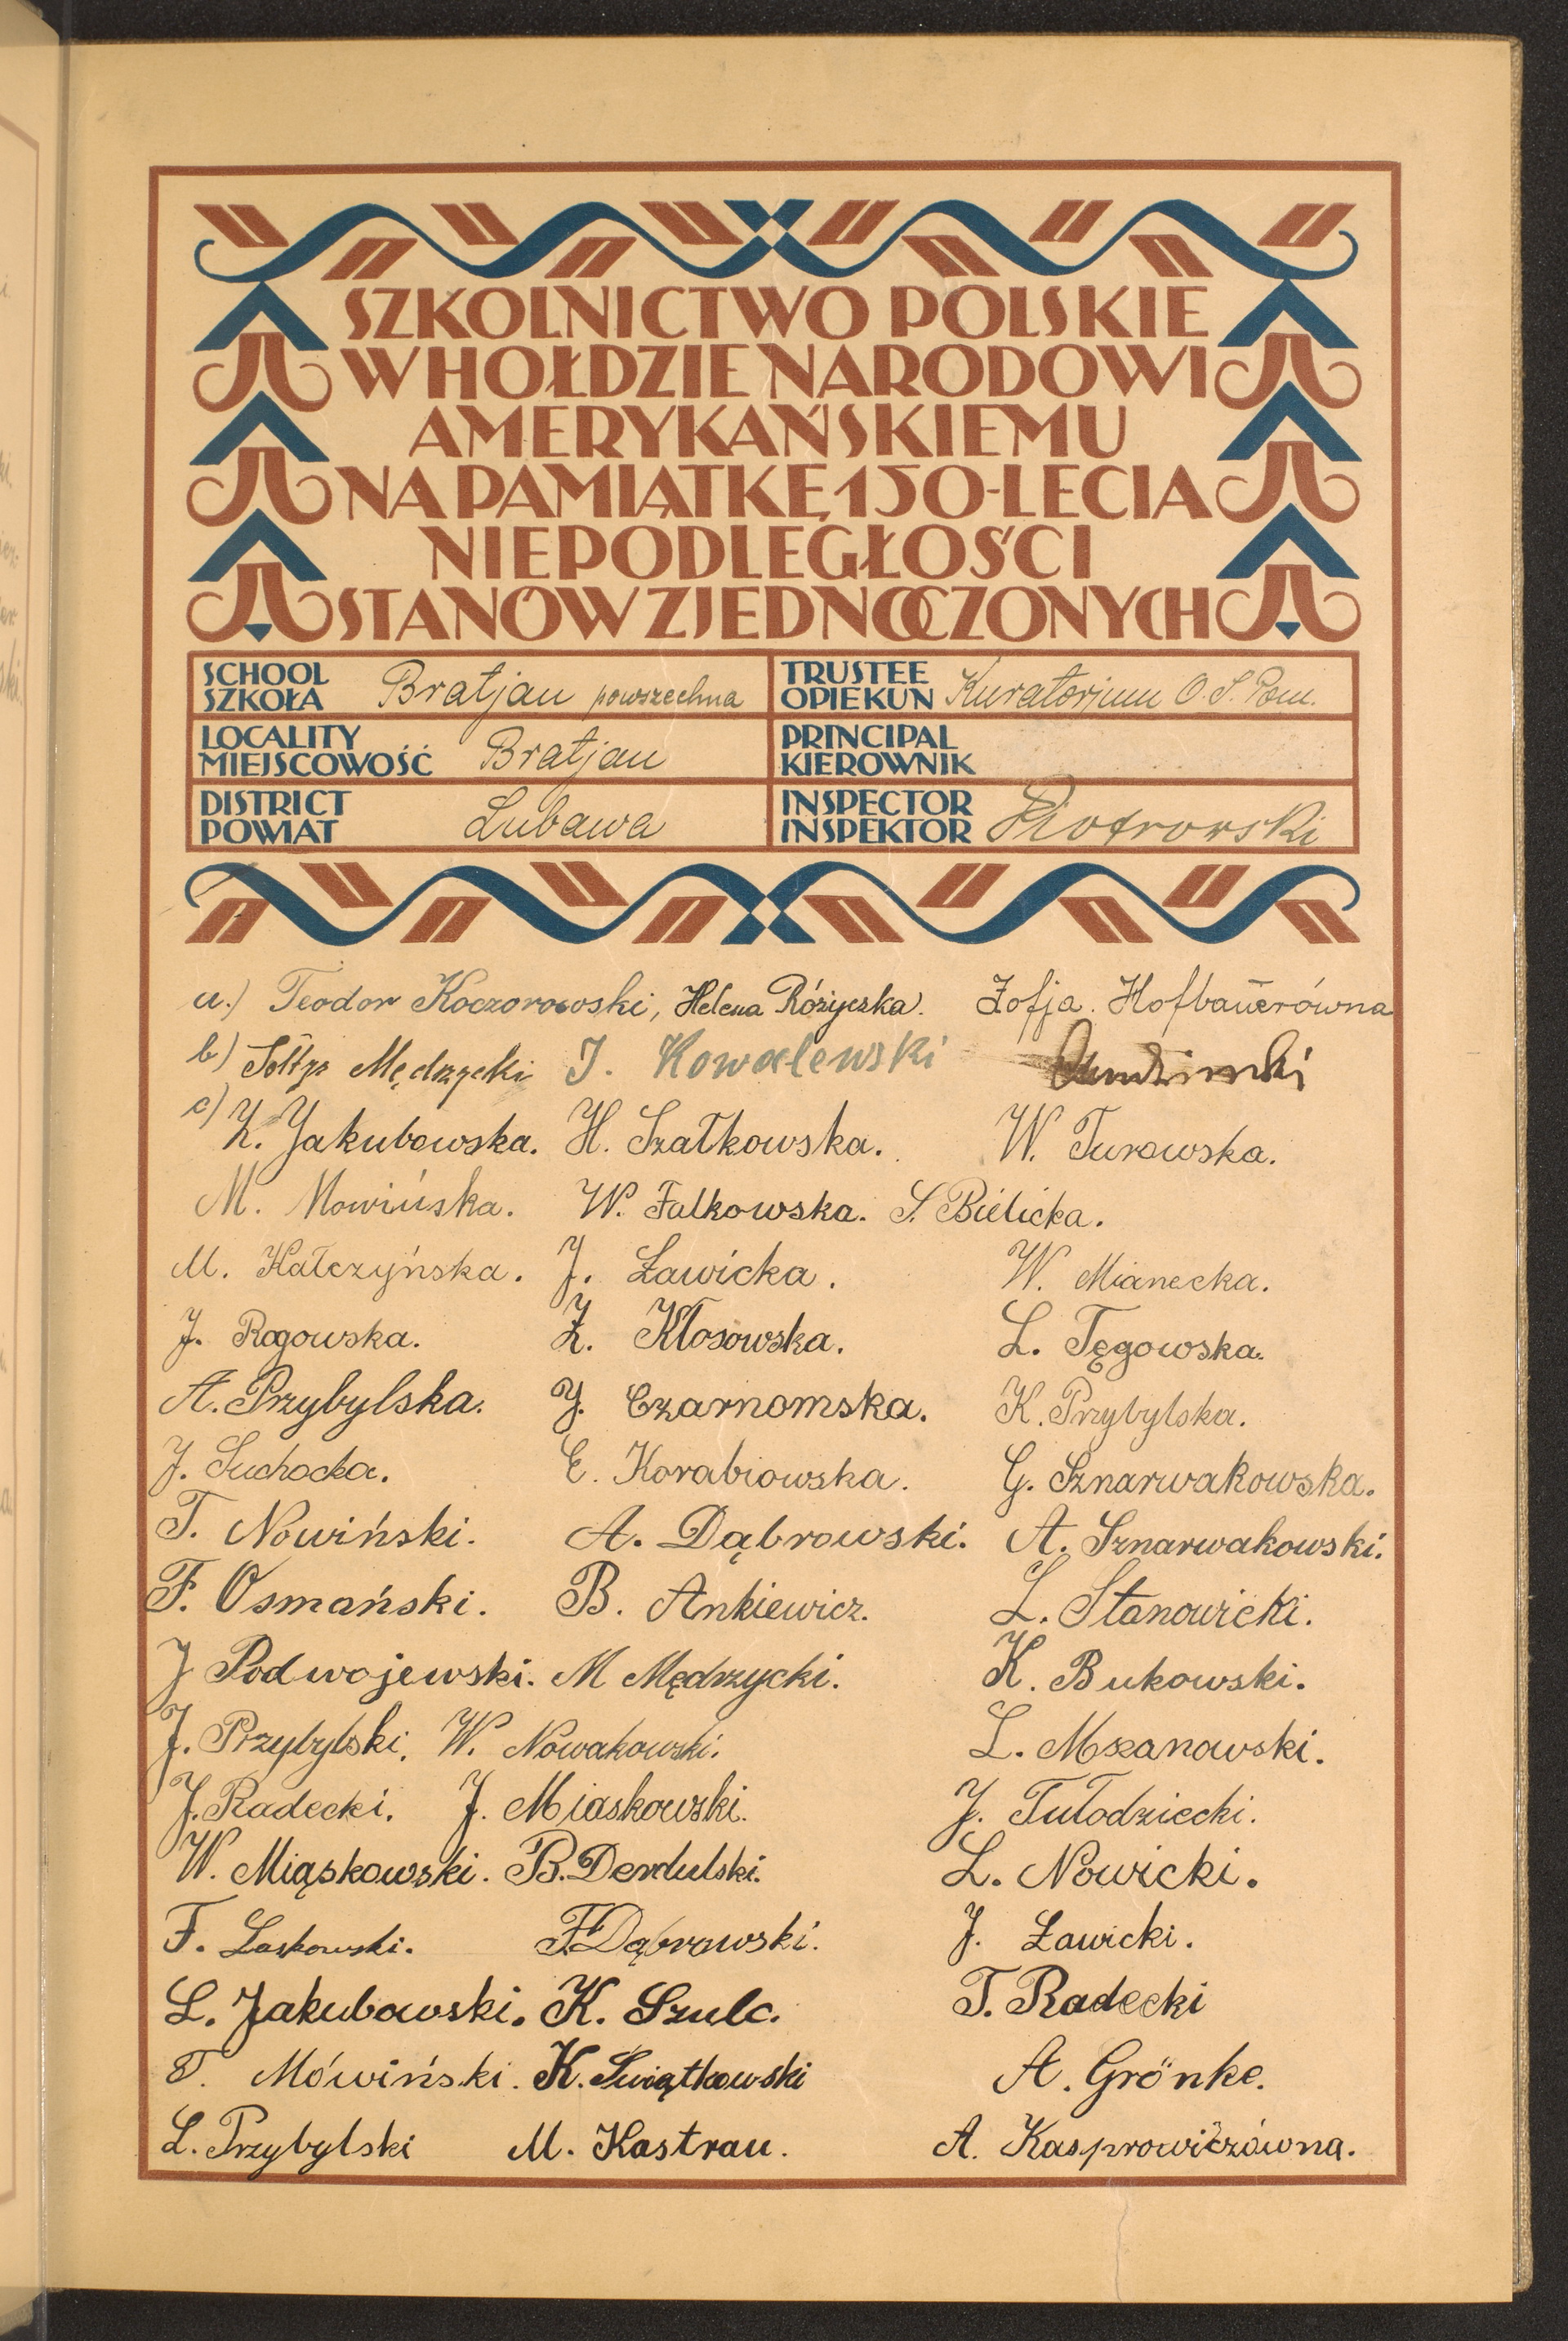 SZKOLNICTWO POLSKIE
W HOŁDZIE NARODOWI
AMERYKAŃSKIEMU
NA PAMIĄTKĘ 150-LECIA
NIEPODLEGŁOŚCI
STANÓW ZJEDNOCZONYCH
SCHOOL SZKOŁA Bratjan powszechna
TRUSTEE OPIEKUN Kuratorjum O. S. Pom.
LOCALITY MIEJSCOWOŚĆ Bratjan
PRINCIPAL KIEROWNIK
DISTRICT POWIAT Lubawa
INSPECTOR INSPEKTOR Piotrowski
a.) Teodor Koczorowski, Helena Różyczka. Zofja Hofbauerówna
b) Sołtys Mędrzycki J. Kowalewski
c) Z. Jakubowska. H. Szatkowska. W. Turowska.
M. Mowińska. W. Falkowska. S. Bielicka.
M. Katczyńska. J. Ławicka. W. Mianecka.
J. Rogowska. Z. Kłosowska. L. Tęgowska.
A. Przybylska. J. Czarnomska. K. Przybylska.
J. Suchocka. E. Korabiowska. G. Sznarwakowska.
T. Nowiński. A. Dąbrowski. A. Sznarwakowski.
F. Osmański. B. Ankiewicz. L. Stanowicki.
J Podwojewski. M Mędrzycki. K. Bukowski.
J. Przybylski. W. Nowakowski. L. Mszanowski.
J. Radecki. J. Miaskowski. J. Tułodziecki.
W. Miąskowski. B. Derdulski. L. Nowicki.
F. Laskowski. F. Dąbrowski. J. Ławicki.
L. Jakubowski. K. Szulc. T. Radecki
T. Mówiński. K. Świątkowski A. Grönke.
L. Przybylski M. Kastrau. A. Kasprowiczówna.